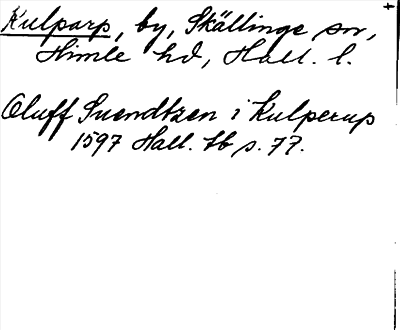 Kulparp, by, Skällinge sn,
Himle hd, Hall. l.
Oluff Suendtzen i Kulperup
1597 Hall. tb s. 77.